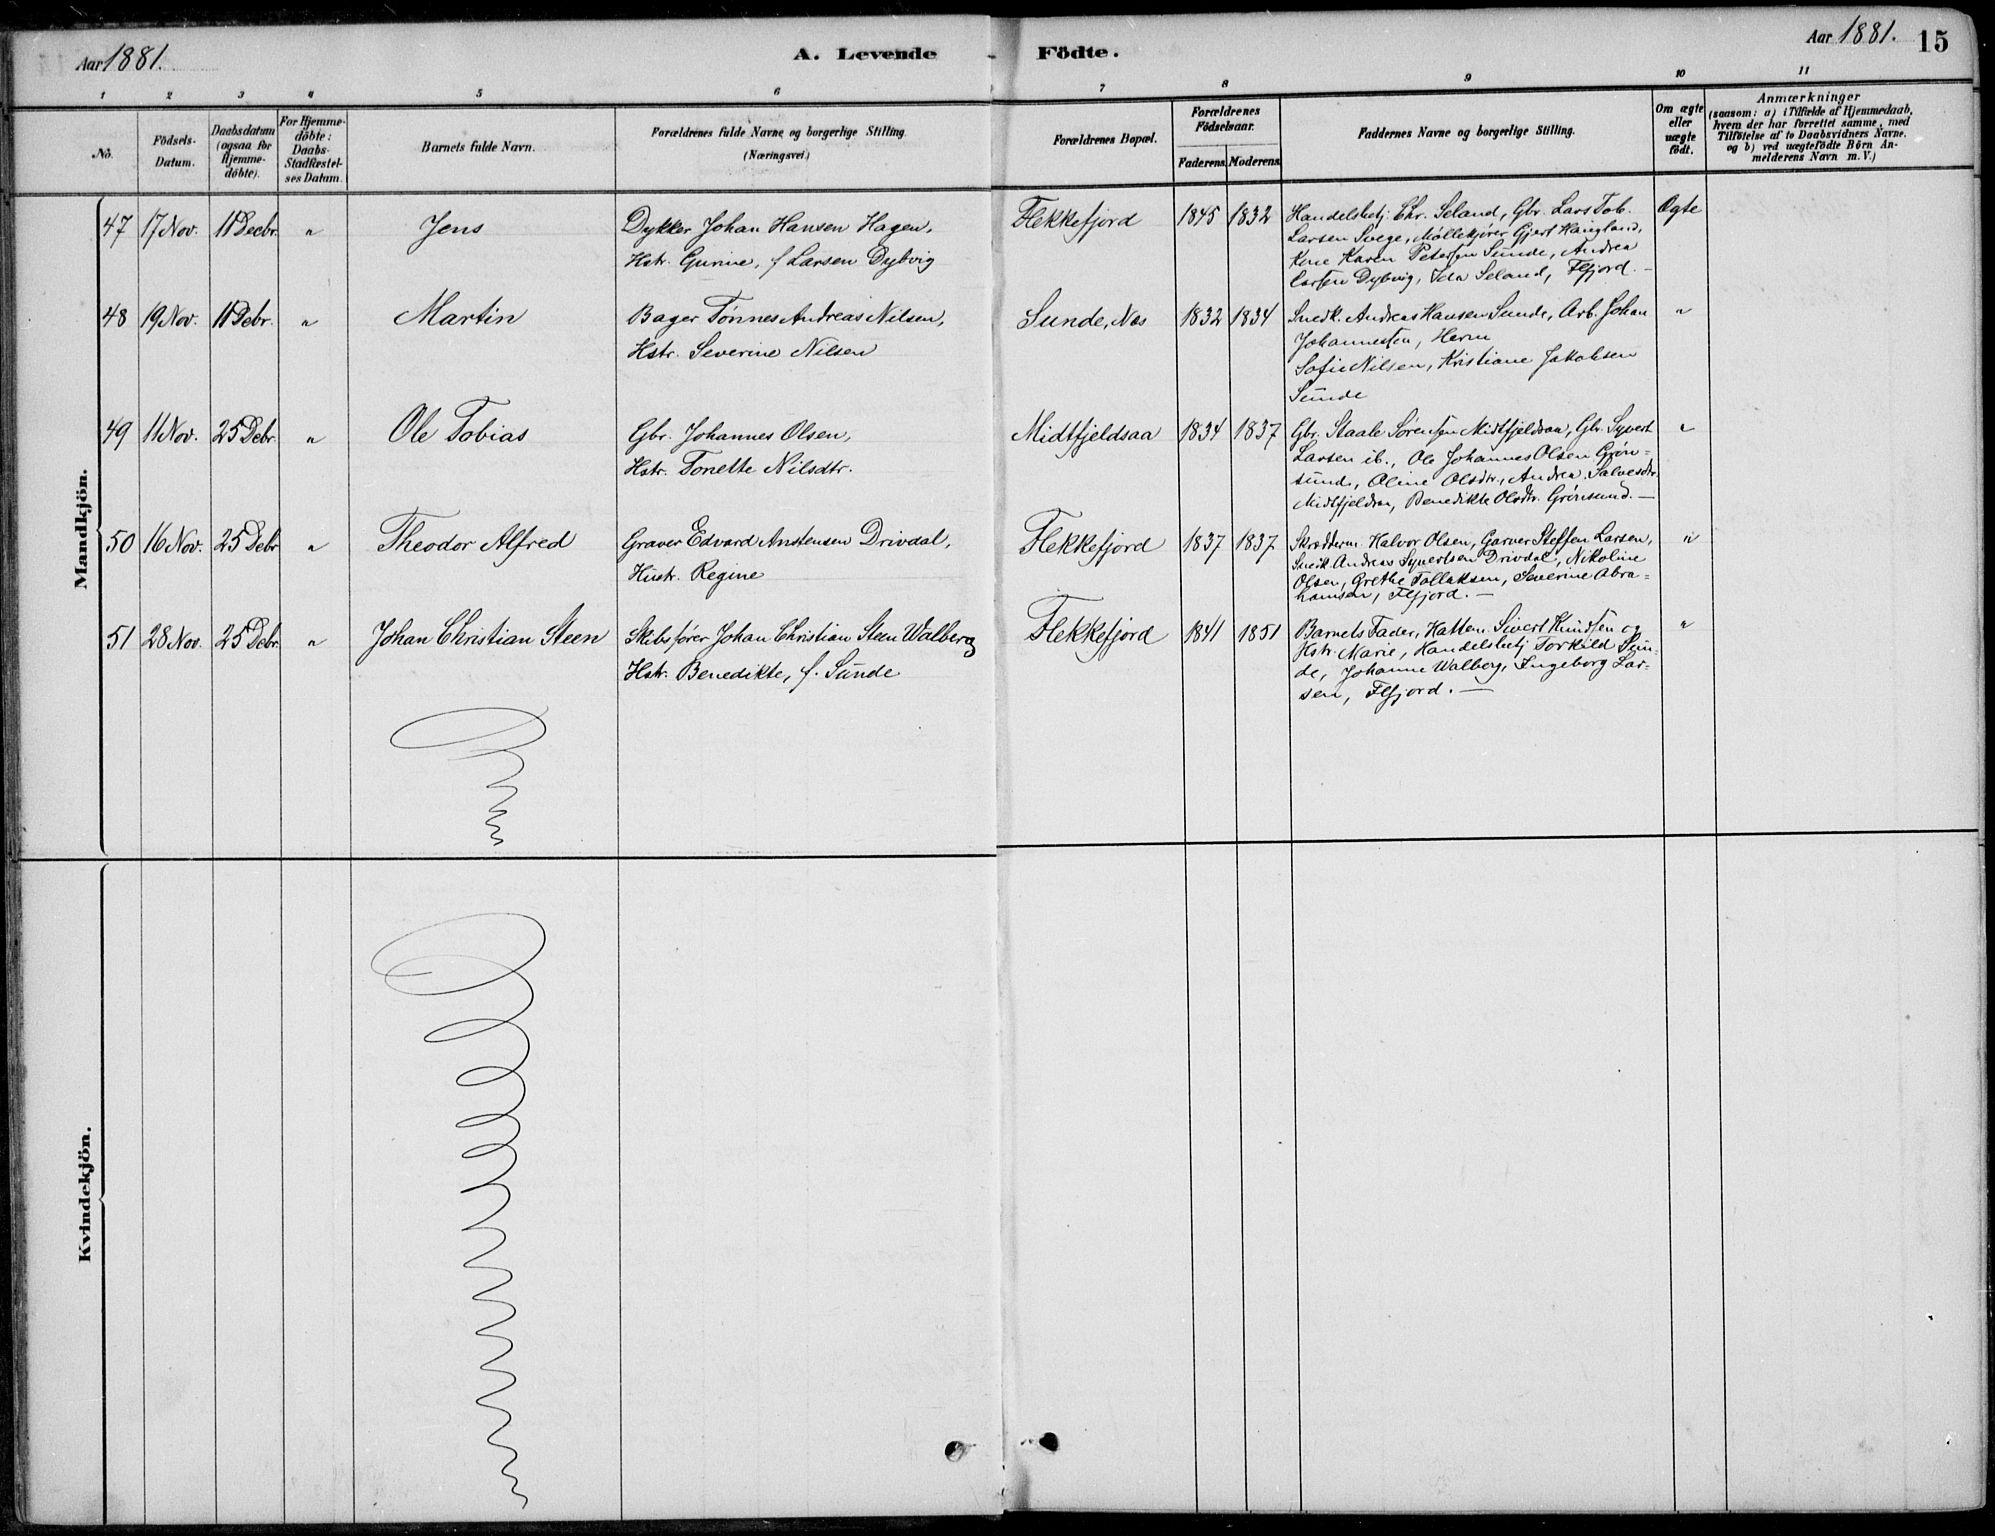 Aar 1881.
A. Levende Födte.
Aar 1881. 15
1 2 3 4 5 6 7 8 9 10 11
No. Födsels-Datum. Daabsdatum (ogsaa for Hjemme-döbte). For Hjemme-döbte: Daabs-Stadfæstel-ses Datum. Barnets fulde Navn. Forældrenes fulde Navne og borgerlige Stilling. (Næringsvei.) Forældrenes Bopæl. Forældrenes Födselsaar. Faderens. Moderens. Faddernes Navne og borgerlige Stilling. Om ægte eller uægte födt. Anmærkninger (saasom: a) i Tilfælde af Hjemmedaab, hvem der har forrettet samme, med Tilföielse af to Daabsvidners Navne. og b) ved uægtefödte Börn An-melderens Navn m. V.)
Mandkjön.
47 17 Nov. 11 Decbr. " Jens Dykker Johan Hansen Hagen, Flekkefjord 1845 1832 Handelsbetj. Chr. Seland, Gbr. Lars Tob. Ægte
Hstr. Gurine, f Larsen Dybvig Larsen Svege, Møllekjører Gjert Haugland,
Kone Karen Petersen Sunde, Andrea
Larsen Dybvig, Ida Seland, Flfjord. —
48 19 Nov. 11 Debr. " Martin Bager Tønnes Andreas Nilsen, Sunde, Nes 1832 1834 Snedk. Andreas Hansen Sunde, Arb. Johan "
Hstr. Severine Nilsen Johannessen,
Sofie Nilsen, Kristiane Jakobsen
Sunde
49 11 Nov. 25 Debr. " Ole Tobias Gbr. Johannes Olsen, Midtfjeldsaa 1834 1837 Gbr. Staale Sørensen Midtfjeldsaa, Gbr. Syvert "
Hstr. Tonette Nilsdtr. Larsen ib., Ole Johannes Olsen Grøn-
sund, Oline Olsdtr., Andrea Salvesdtr.
Midtfjeldsaa, Benedikte Olsdtr. Grønsund. —
50 16 Nov. 25 Debr " Theodor Alfred Graver Edvard Anstensen Drivdal, Flekkefjord 1837 1837 Skrædderm. Halvor Olsen, Garver Steffen Larsen, "
Hustr. Regine Snedk. Andreas Syvertsen Drivdal, Nikoline
Olsen, Grethe Tollaksen, Severine Abra-
hamsen, Flfjord. —
51 28 Nov. 25 Debr. " Johan Christian Steen Skibsfører Johan Christian Steen Walberg Flekkefjord 1841 1851 Barnets Fader, Hattem. Sivert Knudsen og "
Hstr. Benedikte, f. Sunde Hstr. Marie, Handelsbetj Torkild Sun-
de, Johanne Walberg, Ingeborg Lar-
sen, Flfjord. —
Kvindekjön.